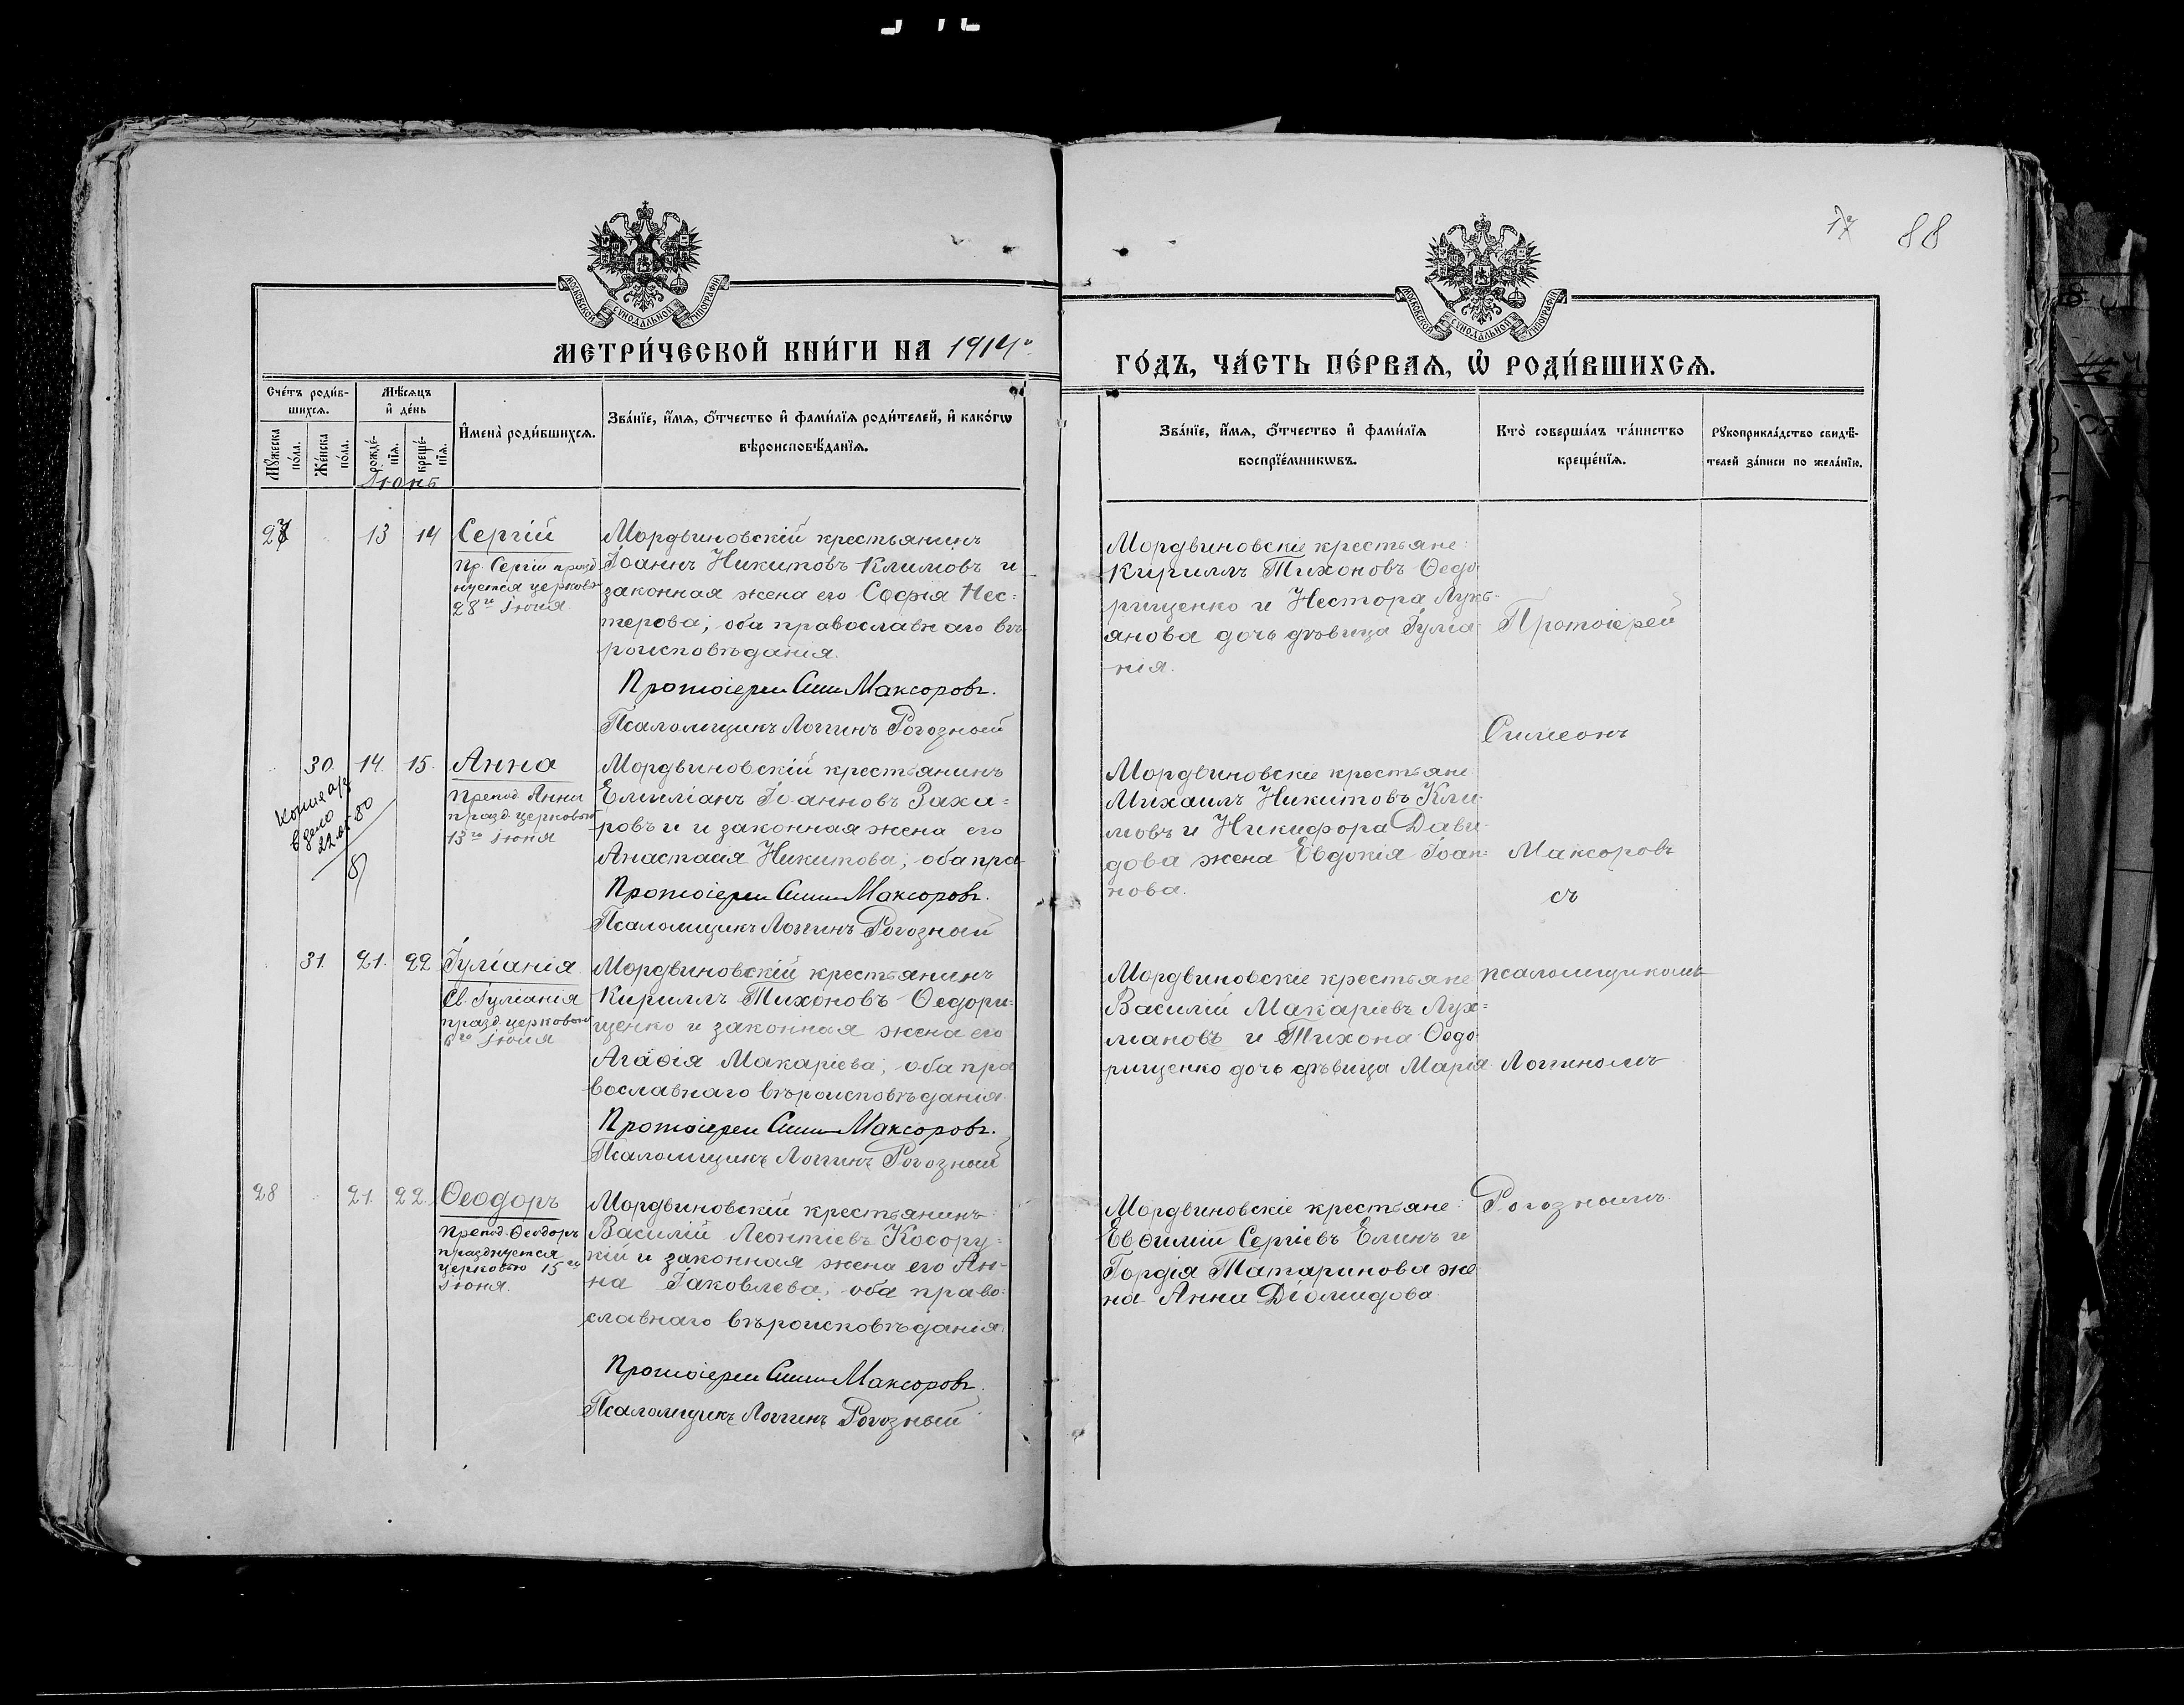 17 88
МОСКОВСКОЙ СѴНОДАЛЬНОЙ ТИПОГРАФІИ
МОСКОВСКОЙ СѴНОДАЛЬНОЙ ТИПОГРАФІИ
МЕТРИ́ЧЕСКОЙ КНИ́ГИ НА 1914го
ГО́ДЪ, ЧА́СТЬ ПЕ́РВАѦ, Ѡ҆ РОДИ́ВШИХСѦ.
Сче́тъ роди́в-
шихсѧ.
Мѣ́сѧцъ
и҆ де́нь
Мꙋ́жеска
по́ла.
Же́нска
по́ла.
рожде́-
нїѧ.
креще́-
нїѧ.
И҆мена̀ роди́вшихсѧ.
Зва́нїе, и҆́мѧ, ѻ҆́тчество и҆ фами́лїѧ роди́телей, и҆ како́гѡ
вѣроисповѣ́данїѧ.
Зва́нїе, и҆́мѧ, ѻ҆́тчество и҆ фами́лїѧ
воспрїе́мникѡвъ.
Кто̀ соверша́лъ та́инство
креще́нїѧ.
Рꙋкоприкла́дство свидѣ́-
телей за́писи по жела́нїю.
Іюнь
27 13 14 Сергій
Пр. Сергій празд
нуется церковью
28го Іюня.
Мордвиновскій крестьянинъ
Іоаннъ Никитовъ Климовъ и
законная жена его Софія Нес=
терова; оба православнаго вѣ
роисповѣданія.
Протоіерей Сим Максоровъ.
Псаломщикъ Логгинъ Рогозный
Мордвиновскіе крестьяне:
Кириллъ Тихоновъ Ѳедо
рищенко и Нестора Лукь-
янова дочь дѣвица Іуліа
нія.
Протоіерей
Симеонъ
30. 14. 15. Анна
Препод. Анна
празд. церковью
13го Іюня
Копия а/з
в дело
22
80
Мордвиновскій крестьянинъ
Емиліанъ Іоанновъ Заха=
ровъ и и законная жена его
Анастасія Никитова; оба пра
Протоіерей Сим Максоровъ.
Псаломщикъ Логгинъ Рогозный
Мордвиновскіе крестьяне:
Михаилъ Никитовъ Кли-
мовъ и Никифора Дави-
дова жена Евдокія Іоан=
нова.
Максоровъ
съ
31. 21. 22 Іуліанія.
Св. Іуліанія
празд. церковью
6го Іюня
Мордвиновскій крестьянинъ
Кириллъ Тихоновъ Ѳедори=
щенко и законная жена его
Агаѳія Макаріева; оба пра
вославнаго вѣроисповѣданія
Протоіерей Сим Максоровъ.
Псаломщикъ Логгинъ Рогозный
Мордвиновскіе крестьяне
Василій Макаріевъ Лух=
мановъ и Тихона Ѳедо-
рищенко дочь дѣвица Марія.
псаломщикомъ
Логгиномъ
28 21. 22. Ѳеодоръ
Препод. Ѳеодоръ
празднуется
церковью 15го
Іюня.
Мордвиновскій крестьянинъ
Василій Леонтіевъ Косору=
кій и законная жена его Ан-
на Іаковлева; оба право-
славнаго вѣроисповѣданія.
Протоіерей Сим Максоровъ.
Псаломщикъ Логгинъ Рогозный
Мордвиновскіе крестьяне:
Евѳимій Сергіевъ Елинъ и
Гордія Татаринова же
на Анна Діомидова.
Рогознымъ.